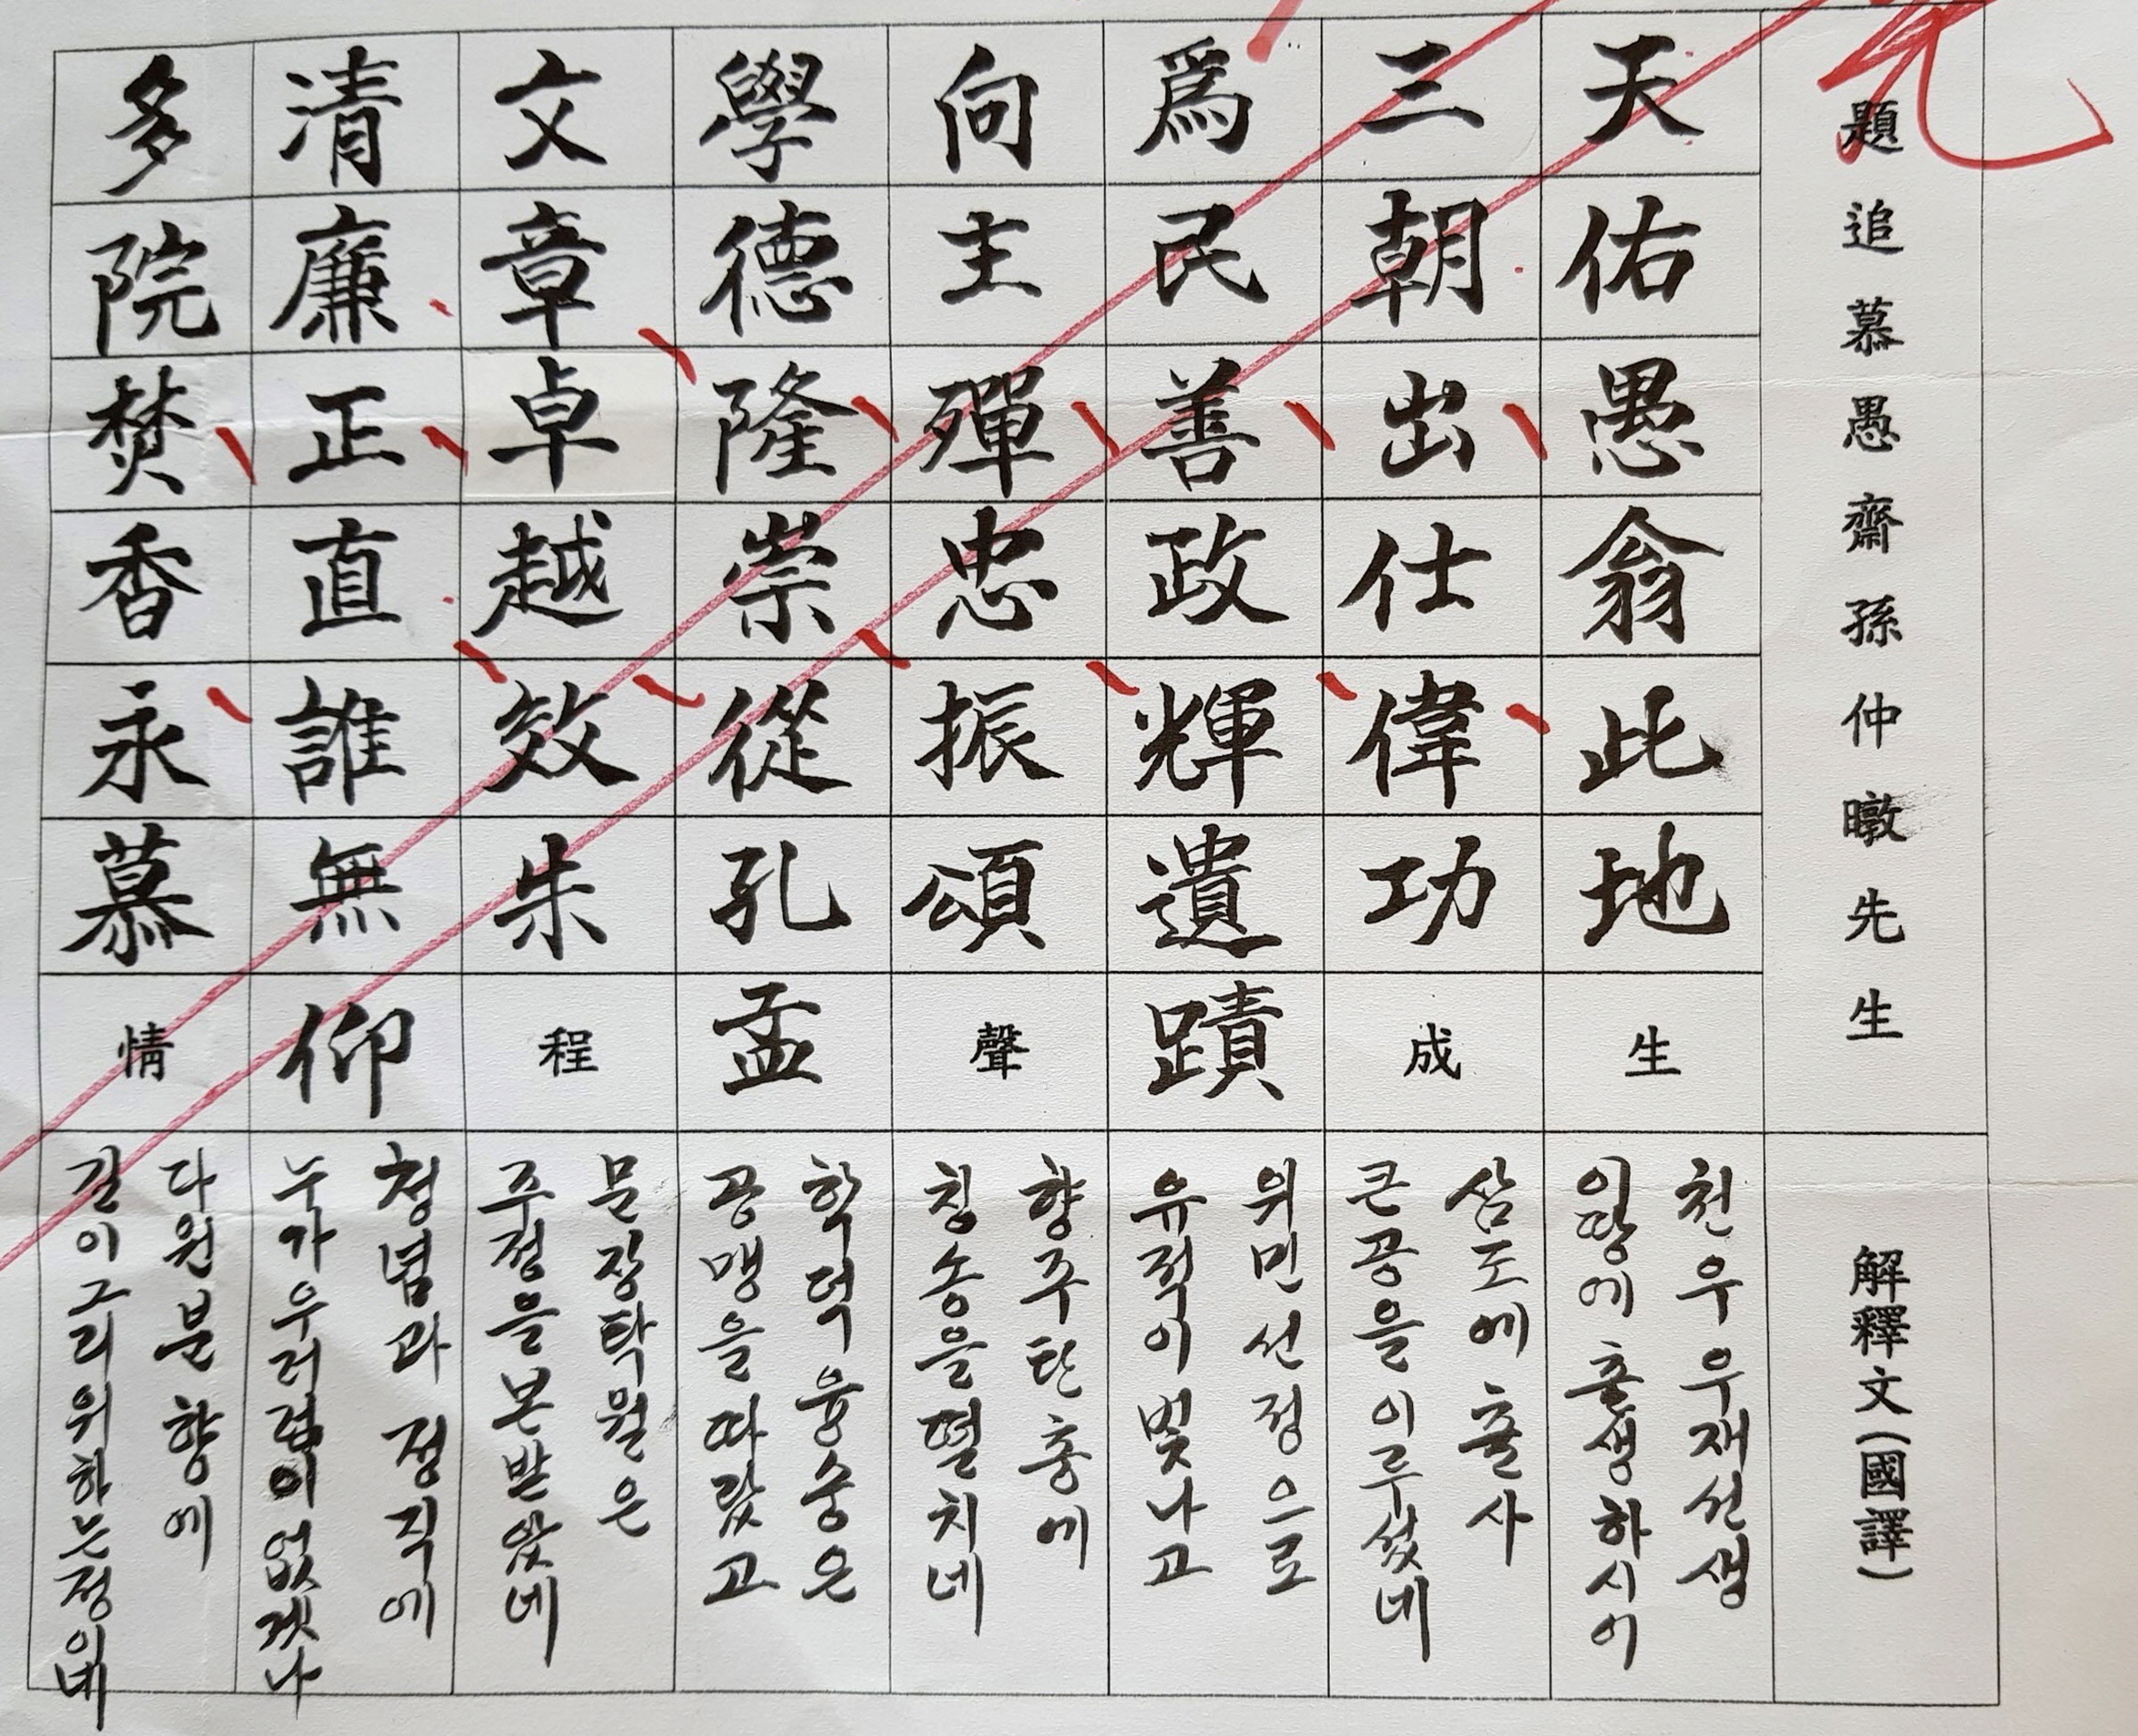 題追慕愚齋孫仲暾先生
解釋文(國譯)
天佑愚翁此地生
천우우재선생
이땅에출생하시어
三朝出仕偉功成
삼도에출사
큰공을이루셨네
爲民善政輝遺蹟
위민선정으로
유적이빛나고
向主殫忠振頌聲
향주탄충에
칭송을떨치네
學德隆崇從孔孟
학덕융숭은
공맹을따랐고
文章卓越效朱程
문장탁월은
주정을본받았네
清廉正直誰無仰
청념과 정직에
누가우러럼이없겠나
多院焚香永慕情
다원분향에
길이그리위하는정이네